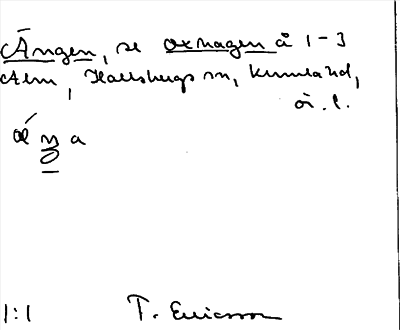 Ängen, se Oxhagen å 1-3
Alm, Hallsbergs sn, Kumla hd,
ö. l.
1:1 T. Ericsson